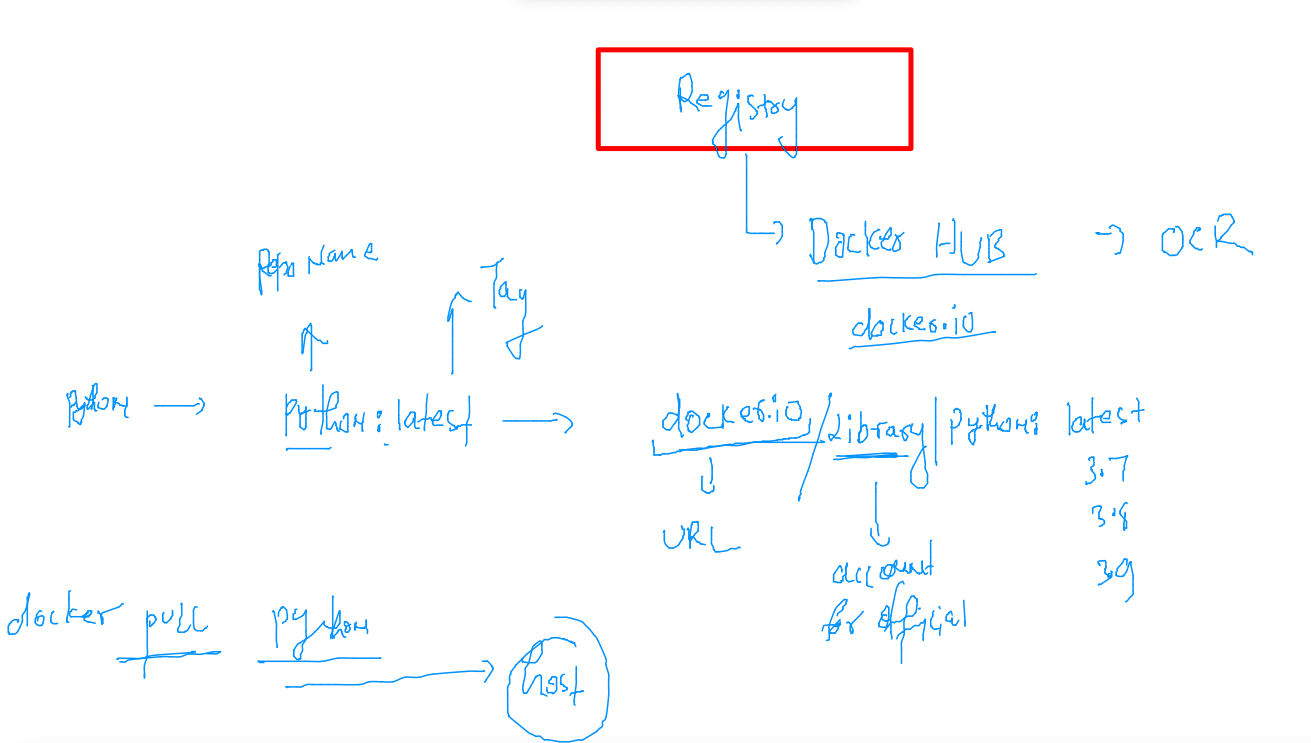 Registry
Docker HUB → OCR
docker.io
Repo Name
Tag
python → python:latest → docker.io/Library/python: latest
3.7
3.8
3.9
URL
account
for official
docker pull python
host